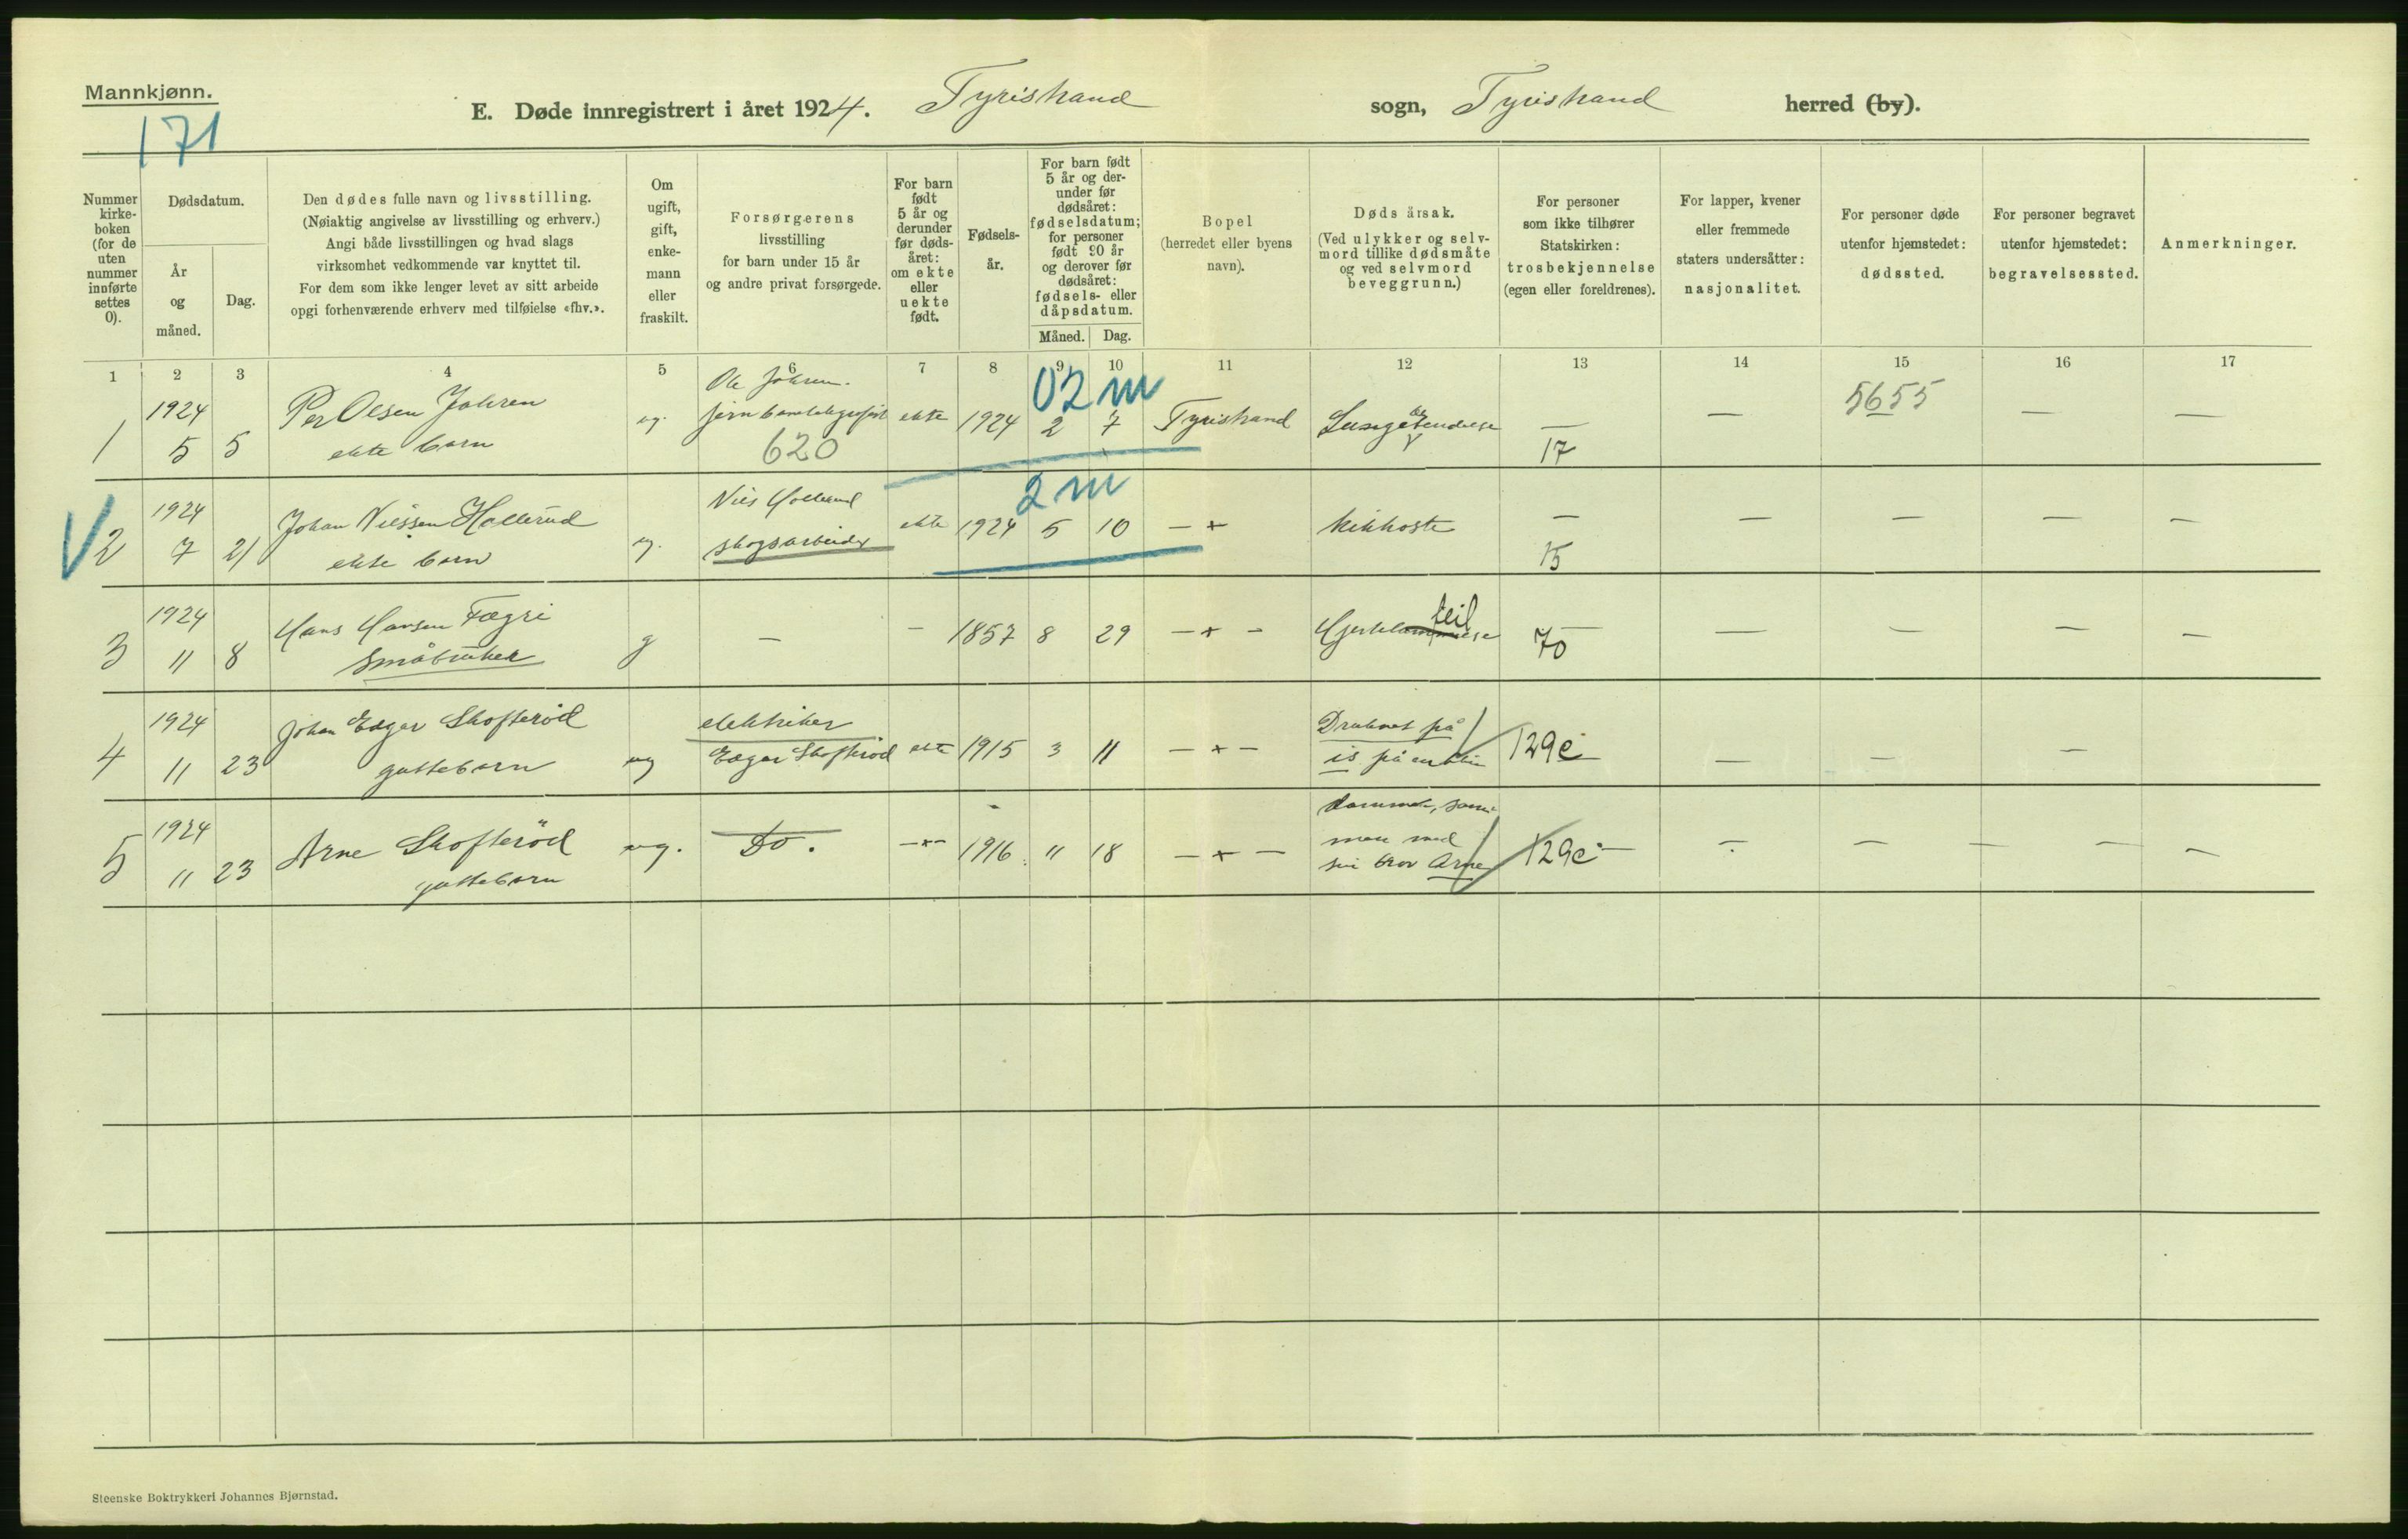 Mannkjønn.
171
E. Døde innregistrert i året 1924. Tyristrand sogn, Tyristrand herred (by).
Nummer kirke-boken (for de uten nummer innførte settes 0).
Dødsdatum.
År og måned.
Dag.
Den dødes fulle navn og livsstilling.
(Nøiaktig angivelse av livsstilling og erhverv.)
Angi både livsstillingen og hvad slags
virksomhet vedkommende var knyttet til.
For dem som ikke lenger levet av sitt arbeide
opgi forhenværende erhverv med tilføielse «fhv.».
Om ugift, gift, enke-mann eller fraskilt.
Forsørgerens
livsstilling
for barn under 15 år
og andre privat forsørgede.
For barn født 5 år og derunder før døds-året: om ekte eller uekte født.
Fødsels-år.
For barn født 5 år og der-under før dødsåret: fødselsdatum; for personer født 90 år og derover før dødsåret: fødsels- eller dåpsdatum.
Måned. Dag.
Bopel
(herredet eller byens
navn).
Dødsårsak.
(Ved ulykker og selv-
mord tillike dødsmåte
og ved selvmord
beveggrunn.)
For personer
som ikke tilhører
Statskirken:
trosbekjennelse
(egen eller foreldrenes).
For lapper, kvener
eller fremmede
staters undersåtter:
nasjonalitet.
For personer døde
utenfor hjemstedet:
dødssted.
For personer begravet
utenfor hjemstedet:
begravelsessted.
Anmerkninger.
1 2 3 4 5 6 7 8 9 10 11 12 13 14 15 16 17
02 m
1924 Ole Johren. 5655
1 5 5 Per Olsen Johren ug. ekte 1924 2 7 Tyristrand Lungebetendelse — — — —
ekte barn 620 17
2 m
1924 Nils Hollerud
V 2 7 21 Johan Nilssen Hollerud ug. skogsarbeider ekte 1924 5 10 — " kikhoste — — — — —
ekte barn 15
1924 feil
3 11 8 Hans Hansen Fægri g — — 1857 8 29 — " — Hjerte — — — — —
småbruker 70
1924 elektriker Druknet på
4 11 23 Johan Edgar Skofterød ug Edgar Skofterød ekte 1915 3 11 — " — is på en liten 129c — — — —
guttebarn
1924 dammen, sam-
5 11 23 Arne Skofterød ug. Do. — " — 1916 11 18 — " — men med 129c — — — — —
guttebarn sin bror Arne
Steenske Boktrykkeri Johannes Bjørnstad.